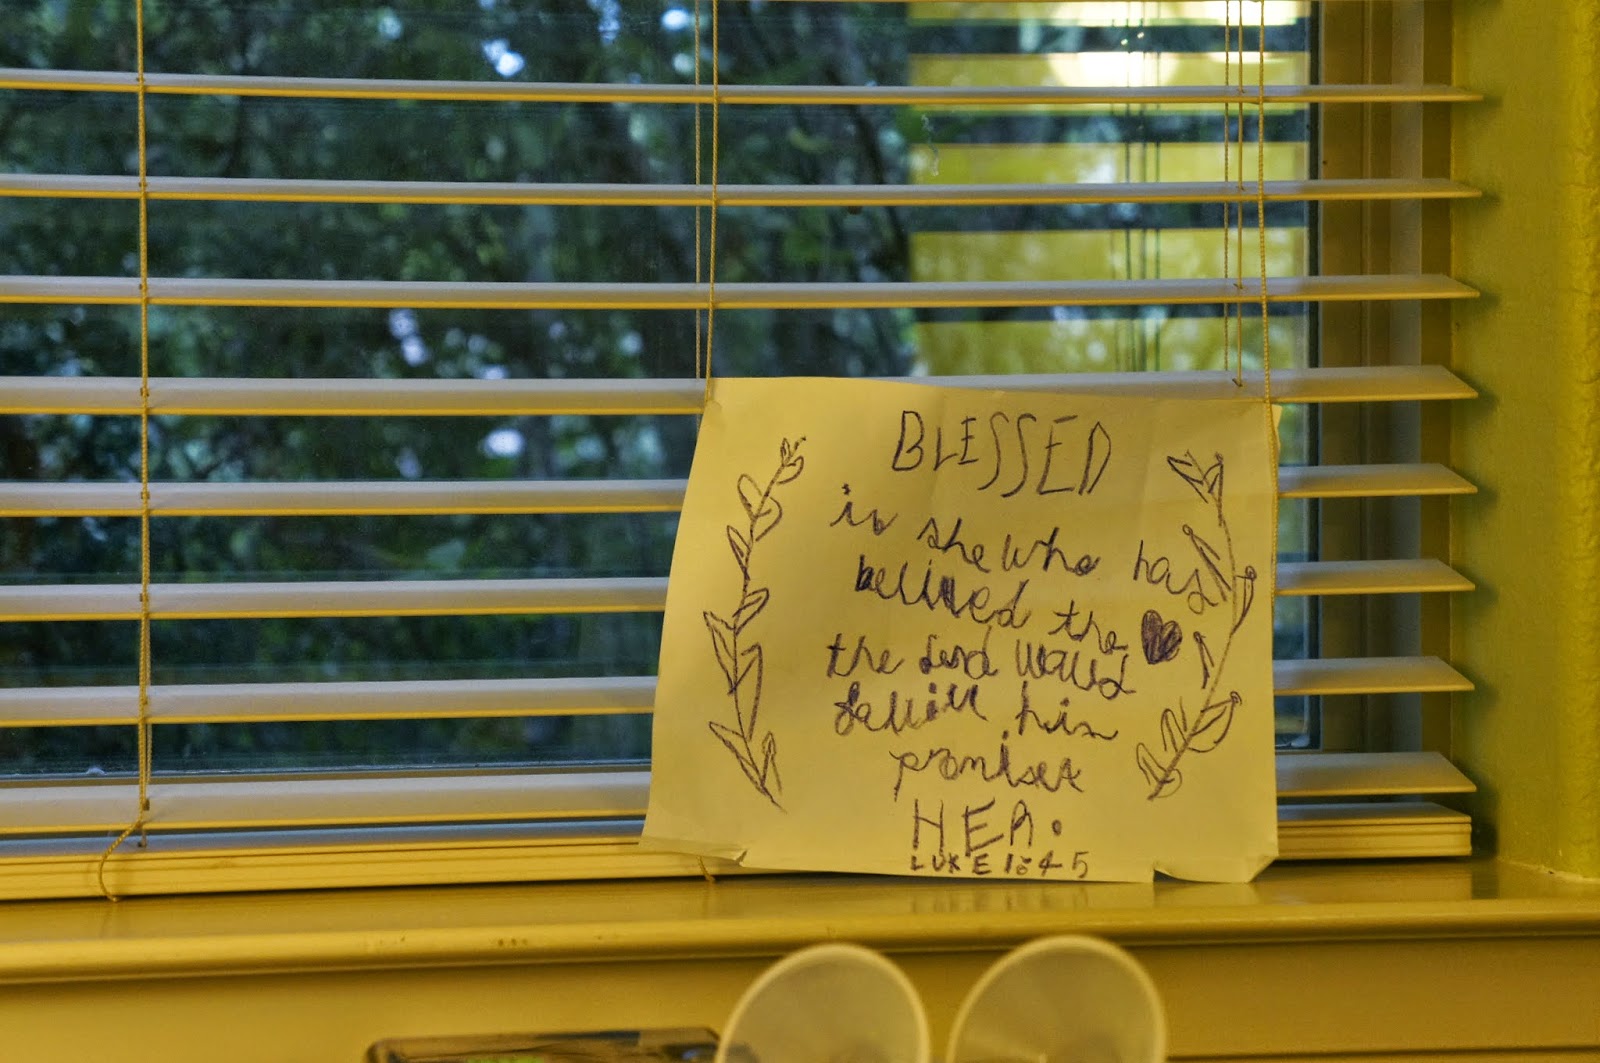 BLESSED
is she who has
belived the
the Lord would
fullfill his
promises
HER.
LUKE 1:45